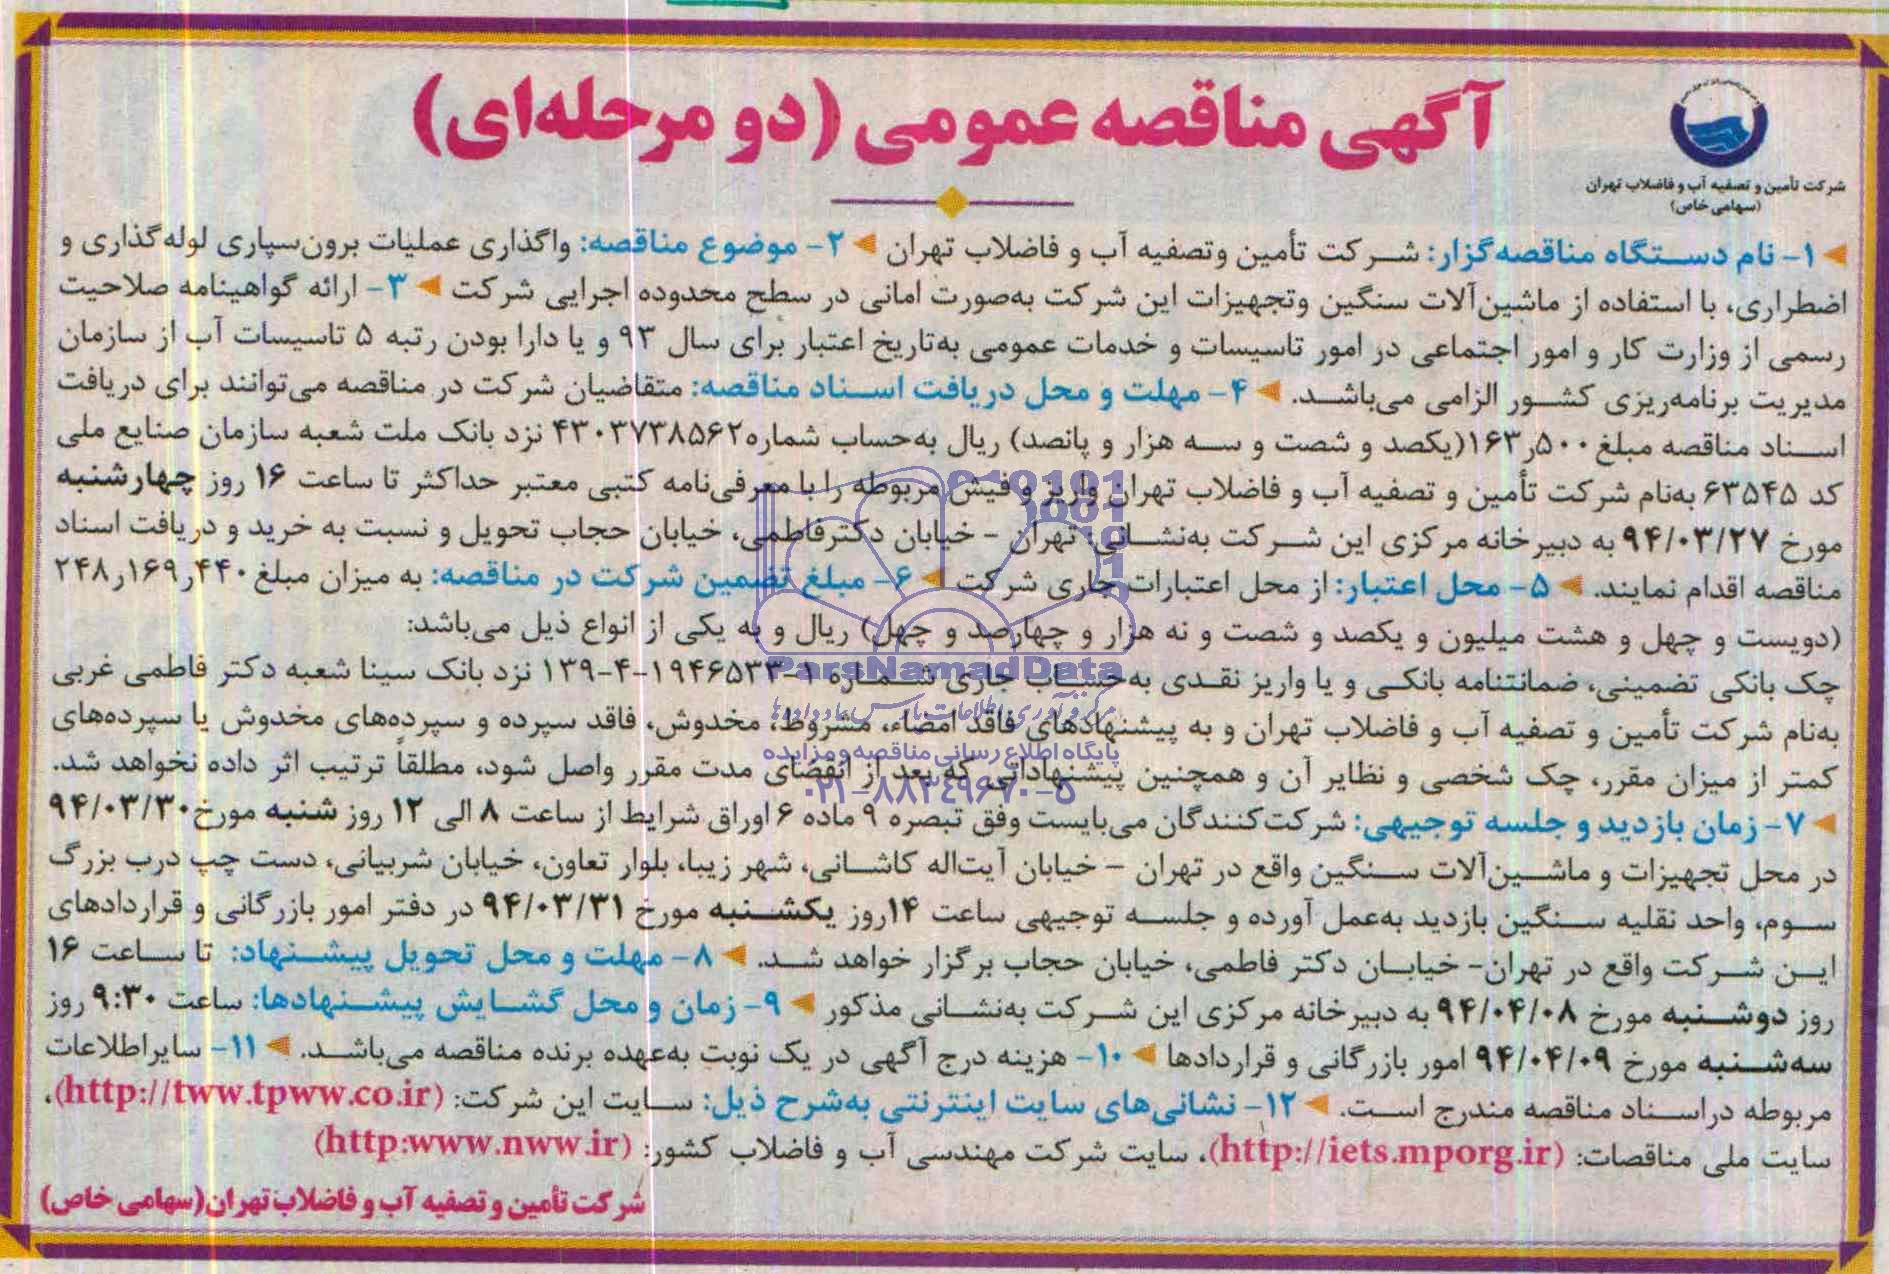 آگهی مناقصه عمومی (دو مرحله‌ای)
شرکت تأمین و تصفیه آب و فاضلاب تهران
(سهامی خاص)
۱- نام دستگاه مناقصه‌گزار: شرکت تأمین وتصفیه آب و فاضلاب تهران ۲- موضوع مناقصه: واگذاری عملیات برون‌سپاری لوله‌گذاری و
اضطراری، با استفاده از ماشین‌آلات سنگین وتجهیزات این شرکت به‌صورت امانی در سطح محدوده اجرایی شرکت ۳- ارائه گواهینامه صلاحیت
رسمی از وزارت کار و امور اجتماعی در امور تاسیسات و خدمات عمومی به‌تاریخ اعتبار برای سال ۹۳ و یا دارا بودن رتبه ۵ تاسیسات آب از سازمان
مدیریت برنامه‌ریزی کشور الزامی می‌باشد. ۴- مهلت و محل دریافت اسناد مناقصه: متقاضیان شرکت در مناقصه می‌توانند برای دریافت
اسناد مناقصه مبلغ ۱۶۳٫۵۰۰(یکصد و شصت و سه هزار و پانصد) ریال به‌حساب شماره۴۳۰۳۷۳۸۵۶۲ نزد بانک ملت شعبه سازمان صنایع ملی
کد ۶۳۵۴۵ به‌نام شرکت تأمین و تصفیه آب و فاضلاب تهران واریز و فیش مربوطه را با معرفی‌نامه کتبی معتبر حداکثر تا ساعت ۱۶ روز چهارشنبه
مورخ ۹۴/۰۳/۲۷ به دبیرخانه مرکزی این شرکت به‌نشانی: تهران - خیابان دکترفاطمی، خیابان حجاب تحویل و نسبت به خرید و دریافت اسناد
مناقصه اقدام نمایند. ۵- محل اعتبار: از محل اعتبارات جاری شرکت ۶- مبلغ تضمین شرکت در مناقصه: به میزان مبلغ ۲۴۸٫۱۶۹٫۴۴۰
(دویست و چهل و هشت میلیون و یکصد و شصت و نه هزار و چهارصد و چهل) ریال و به یکی از انواع ذیل می‌باشد:
چک بانکی تضمینی، ضمانتنامه بانکی و یا واریز نقدی به‌حساب جاری شماره ۱-۱۹۴۶۵۳۳-۴-۱۳۹ نزد بانک سینا شعبه دکتر فاطمی غربی
به‌نام شرکت تأمین و تصفیه آب و فاضلاب تهران و به پیشنهادهای فاقد امضاء، مشروط، مخدوش، فاقد سپرده و سپرده‌های مخدوش یا سپرده‌های
کمتر از میزان مقرر، چک شخصی و نظایر آن و همچنین پیشنهاداتی که بعد از انقضای مدت مقرر واصل شود، مطلقاً ترتیب اثر داده نخواهد شد.
۷- زمان بازدید و جلسه توجیهی: شرکت‌کنندگان می‌بایست وفق تبصره ۹ ماده ۶ اوراق شرایط از ساعت ۸ الی ۱۲ روز شنبه مورخ ۹۴/۰۳/۳۰
در محل تجهیزات و ماشین‌آلات سنگین واقع در تهران - خیابان آیت‌اله کاشانی، شهر زیبا، بلوار تعاون، خیابان شربیانی، دست چپ درب بزرگ
سوم، واحد نقلیه سنگین بازدید به‌عمل آورده و جلسه توجیهی ساعت ۱۴روز یکشنبه مورخ ۹۴/۰۳/۳۱ در دفتر امور بازرگانی و قراردادهای
این شرکت واقع در تهران- خیابان دکتر فاطمی، خیابان حجاب برگزار خواهد شد. ۸- مهلت و محل تحویل پیشنهاد: تا ساعت ۱۶
روز دوشنبه مورخ ۹۴/۰۴/۰۸ به دبیرخانه مرکزی این شرکت به‌نشانی مذکور ۹- زمان و محل گشایش پیشنهادها: ساعت ۹:۳۰ روز
سه‌شنبه مورخ ۹۴/۰۴/۰۹ امور بازرگانی و قراردادها ۱۰- هزینه درج آگهی در یک نوبت به‌عهده برنده مناقصه می‌باشد. ۱۱- سایراطلاعات
مربوطه دراسناد مناقصه مندرج است. ۱۲- نشانی‌های سایت اینترنتی به‌شرح ذیل: سایت این شرکت: (http://tww.tpww.co.ir)،
سایت ملی مناقصات: (http://iets.mporg.ir)، سایت شرکت مهندسی آب و فاضلاب کشور: (http:www.nww.ir)
شرکت تأمین و تصفیه آب و فاضلاب تهران(سهامی خاص)
ParsNamadData
پایگاه اطلاع رسانی مناقصه و مزایده
۰۲۱-۸۸۳۴۹۶۷۰-۵